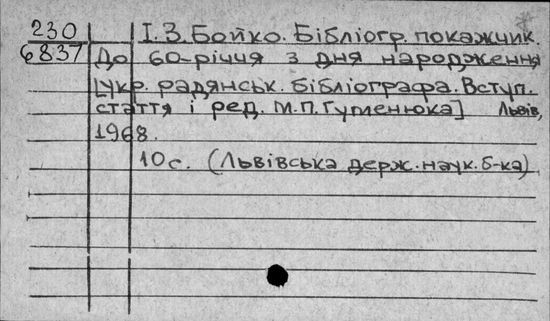 230 І. З. Бойко. Бібліогр. покажчик.
6837 До 60-річчя з дня народження
[укр. радянськ. бібліографа. Вступ.
стаття і ред. М.П. Гуменюка] Львів,
1968.
10 с. (Львівська держ. наук. б-ка)